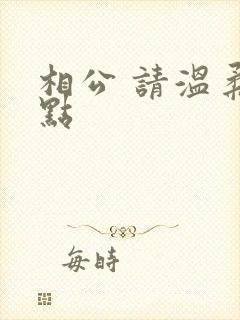 相公 請溫柔
點
每時